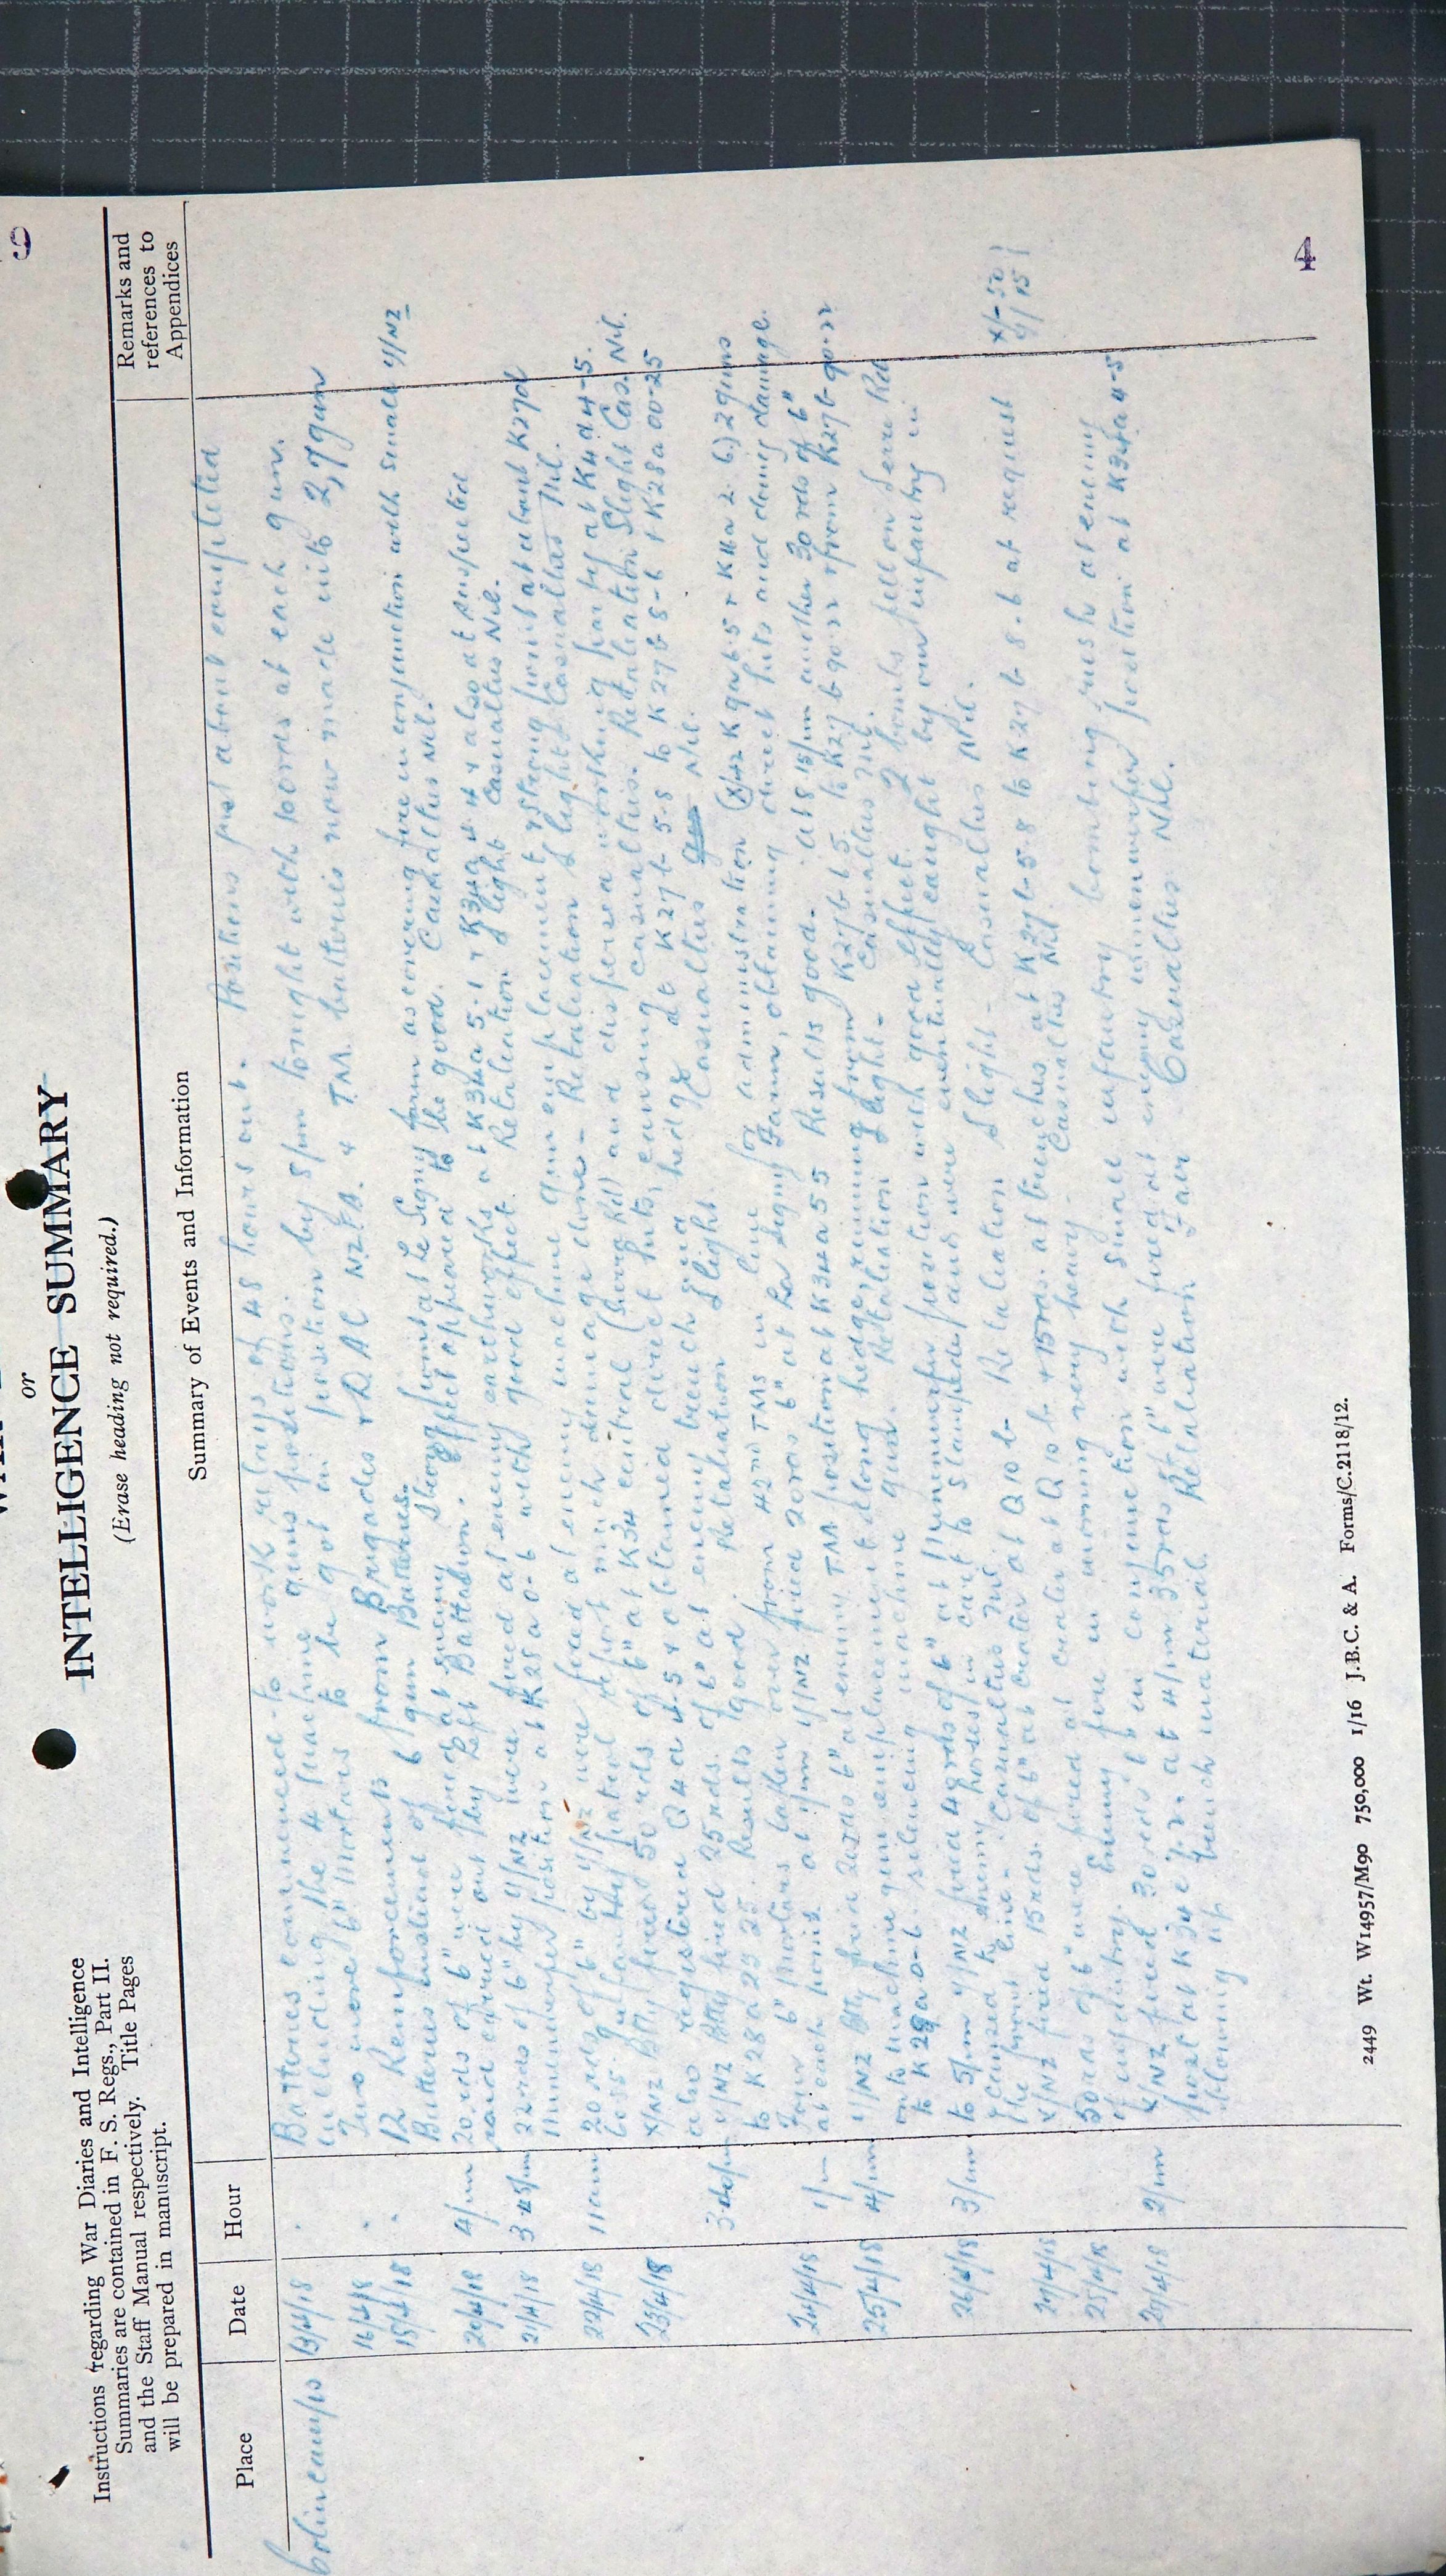 or
INTELLIGENCE SUMMARY
(Erase heading not required.)
Instructions regarding War Diaries and Intelligence
Summaries are contained in F. S. Regs., Part II.
and the Staff Manual respectively. Title Pages
will be prepared in manuscript.
Place Date Hour Summary of Events and Information Remarks and references to Appendices
Colincamps 13/4/18 Batteries commenced to work relays of 48 hours out. Positions just about completed
including the 4 machine guns positions.
Two more 6" Mortars to be got in position by 8pm tonight with 100rds at each gun.
16/4/18 12 Reinforcements from Brigades & DAC NZFA. & TM. batteries now made into 2, 7 gun
15/4/18 Batteries instead of 6 gun Batteries.
20/4/18 4pm 20 rds of 6" were fired at enemy strong points at Le Signy farm as covering fire in conjunction with small Y/NZ
raid carried out by Left Battalion. Effect appeared to be good. Casualties Nil.
21/4/18 3.45pm 22 rds of 6" by Y/NZ were fired at enemy earthworks at K34a 5-1 & K34a 4.4 also at suspected
Minnenwerfer position at K28a 0-6 with good effect. Retaliation Slight Casualties Nil.
22/4/18 11am 20 rds of 6" by Y/NZ were fired at enemy machine gun emplacement & strong point about K27d
6.55. Infantry patrol report much damage done - Retaliation Slight Casualties Nil.
23/4/18 X/NZ Bty fired 50 rds of 6" at K34 central and dispersed working party at K4a4-5.
also registered Q4a 4.5 & obtained direct hits, causing casualties. Retaliation Slight Cas. Nil.
3.40pm Y/NZ Bty fired 25rds. of 6" at enemy trench and hedge at K27b 5.8 to K27b 8-6 & K28a 00-25
to K28a 25 25 Results good Retaliation Slight. Casualties Nil.
Four 6" Mortars taken over from 42nd TMs in line for administration (X/42 K9a6.5 & K4a 2.6) 2 guns
24/4/18 1pm at each point at 1pm Y/NZ fired 20 rds 6" at La Signy Farm, obtaining direct hits and doing damage.
25/4/18 4pm Y/NZ Bty fired 20rds 6" at enemy TM position at K34a55 Results good. at 8.15pm another 30 rds of 6"
on to machine gun emplacement along hedge, running from K27b 6.5 to K27b 90.22 & from K27b 90.22
to K28a.0-6. silencing machine gun. Retaliation Slight - Casualties Nil.
26/4/18 3pm to 5pm Y/NZ fired 49rds of 6" at Minnenwerfer position with good effect. 2 bombs fell on Serre Rd
& caused enemy horses in cart to stampede and were eventually caught by our infantry in
the front line - Casualties Nil
27/4/18 X/NZ fired 15 rds. of 6" at crater at Q10b - Retaliation Slight - Casualties Nil.
25/4/18 50 rds of 6" were fired at crater at Q10b & 15rds. at trenches at K27b 5.8 to K27b 8.6 at request X/- 50 Y/ 15
of infantry. Enemy fire in morning very heavy - Casualties Nil
29/4/18 2pm X/NZ fired 30 rds 6" in conjunction with small infantry bombing rush at enemy
post at K34c 7.2. at 4pm 35rds of 6" were fired at enemy minnenwerfer position at K34a 4-5
blowing up trench material. Retaliation Fair Casualties Nil.
4
2449 Wt. W14957/M90 750,000 1/16 J.B.C. & A. Forms/C.2118/12.